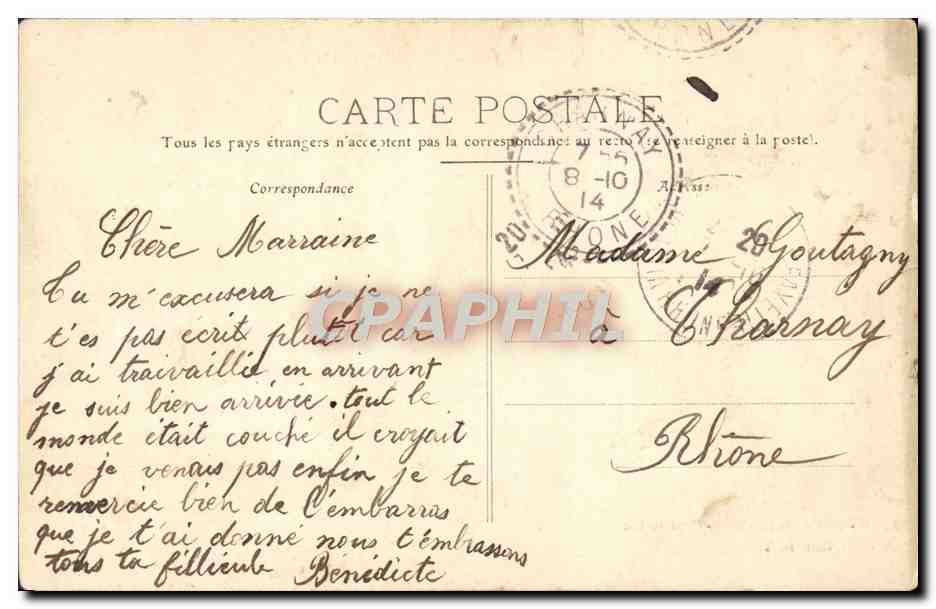 CARTE POSTALE
Tous les pays étrangers n'acceptent pas la correspondance au recto (se renseigner à la poste).
Correspondance
Chère Marraine
Tu m'excusera si je ne
t'es pas écrit plutot car
j'ai traivaillie en arrivant
je suis bien arrivée. tout le
monde était couché il croyait
que je venais pas enfin je te
remercie bien de l'embarras
que je t'ai donné nous t'embrassons
tous ta fillieule Bénédicte
Adresse
Madame Goutagny
à Charnay
Rhône
CHARNAY
8-10
14
RHONE
20
14
CPAPHIL